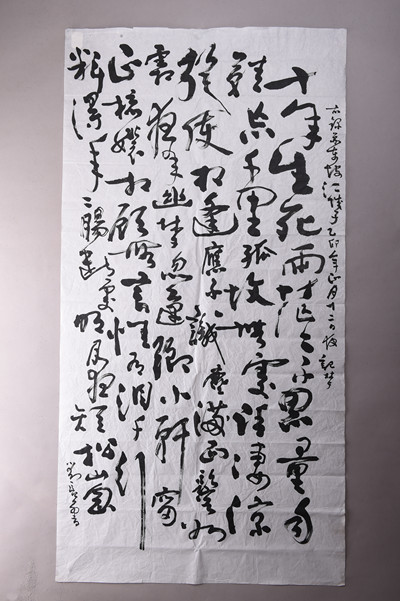 蘇東坡江城子乙卯年正月十二日夜記夢
十年生死兩茫々不思量自
難忘千里孤墳無處話淒涼
縱使相逢應不識塵滿面鬢如
霜夜來幽夢忽還鄉小軒窗
正梳妝相顧無言惟有淚千行
料得年々腸斷處明月夜短松崗